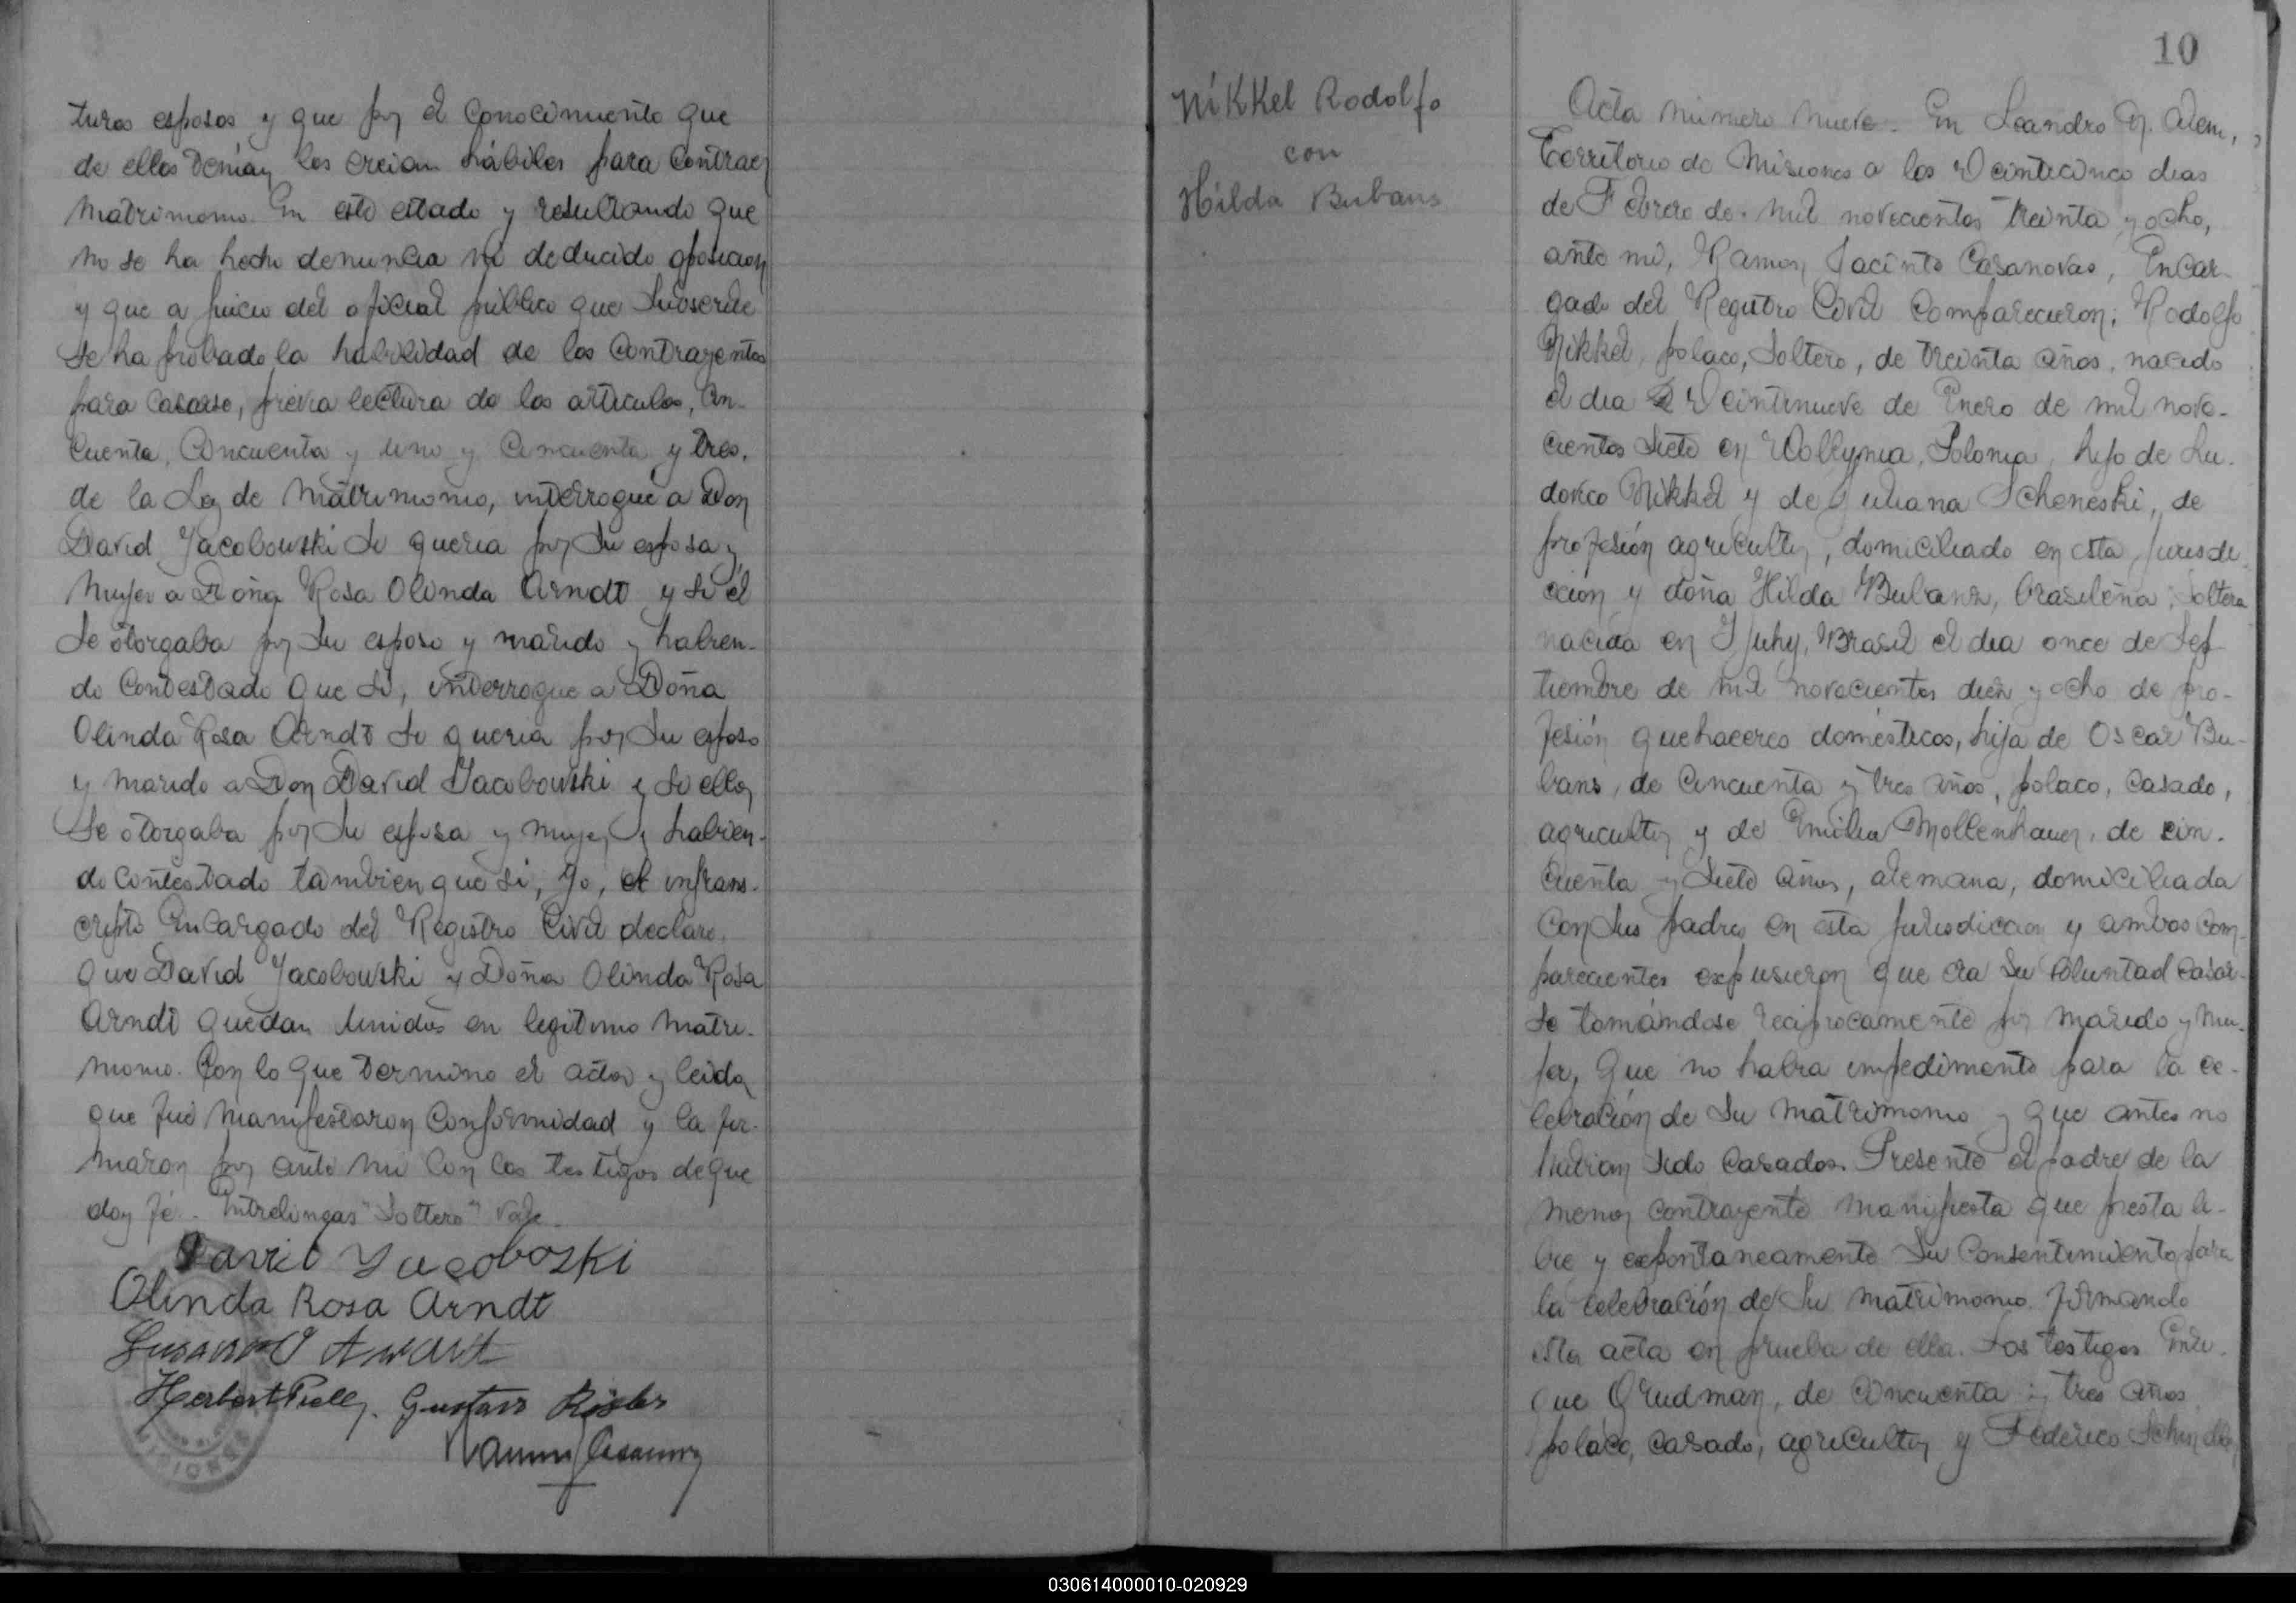 turos esposos y que por el conocimiento que
de ellos tenian los creian hábiles para contraer
matrimonio. En este estado y resultando que
no se ha hecho denuncia ni deducido oposicion
y que a juicio del oficial público que subscribe
se ha probado la habilidad de los contrayentes
para casarse, previa lectura de los articulos, cin-
cuenta, cincuenta y uno y cincuenta y tres,
de la Ley de matrimonio, interrogué a Don
David Jacobowski si queria por su esposa y
mujer a Doña Rosa Olinda Arndt y si él
se otorgaba por su esposo y marido y habien-
do contestado que si, interrogue a Doña
Olinda Rosa Arndt si queria por su esposo
y marido a Don David Jacobowski y si ella
se otorgaba por su esposa y mujer y habien-
do contestado tambien que si, yo, el infrans-
cripto Encargado del Registro Civil declaro
que David Jacobowski y Doña Olinda Rosa
Arndt quedan unidos en legitimo matri-
monio. Con lo que termino el acto y leida
que fué manifestaron conformidad y la fir-
maron por ante mi con los testigos de que
doy fé.- Entrelineas "Soltero" Vale.
David Yacoboski
Olinda Rosa Arndt
Herbert
Gustavo
MISIONES
Nikkel Rodolfo
con
Hilda Bubans
10
Acta número nueve. En Leandro N. Alem,
Territorio de Misiones a los veinticinco dias
de Febrero de mil novecientos treinta y ocho,
ante mi, Ramon Jacinto Casanovas, Encar-
gado del Registro Civil comparecieron; Rodolfo
Nikkel, polaco, soltero, de treinta años, nacido
el dia veintinueve de Enero de mil nove-
cientos siete en Wolkynia, Polonia, hijo de Lu-
dovico Nikkel y de Juliana Scheneski, de
profesión agricultor, domiciliado en esta jurisdi-
cción y doña Hilda Bubans, brasileña, soltera
nacida en Ijuhy, Brasil el dia once de Sep-
tiembre de mil novecientos diez y ocho de pro-
fesión quehaceres domésticos, hija de Oscar Bu-
bans, de cincuenta y tres años, polaco, casado,
agricultor y de Emilia Mollenhauer, de cin-
cuenta y siete años, alemana, domiciliada
con sus padres en esta jurisdiccion y ambos com-
parecientes expusieron que era su voluntad casar-
se tomándose reciprocamente por marido y mu-
jer, que no habia impedimento para la ce-
lebración de su matrimonio y que antes no
habian sido casados. Presente el padre de la
menor contrayente manifiesta que presta li-
bre y expontaneamente su consentimiento para
la celebración de su matrimonio firmando
esta acta en prueba de ella. Los testigos Enri-
que Grudman, de cincuenta y tres años
polaco, casado, agricultor y Federico
030614000010-020929